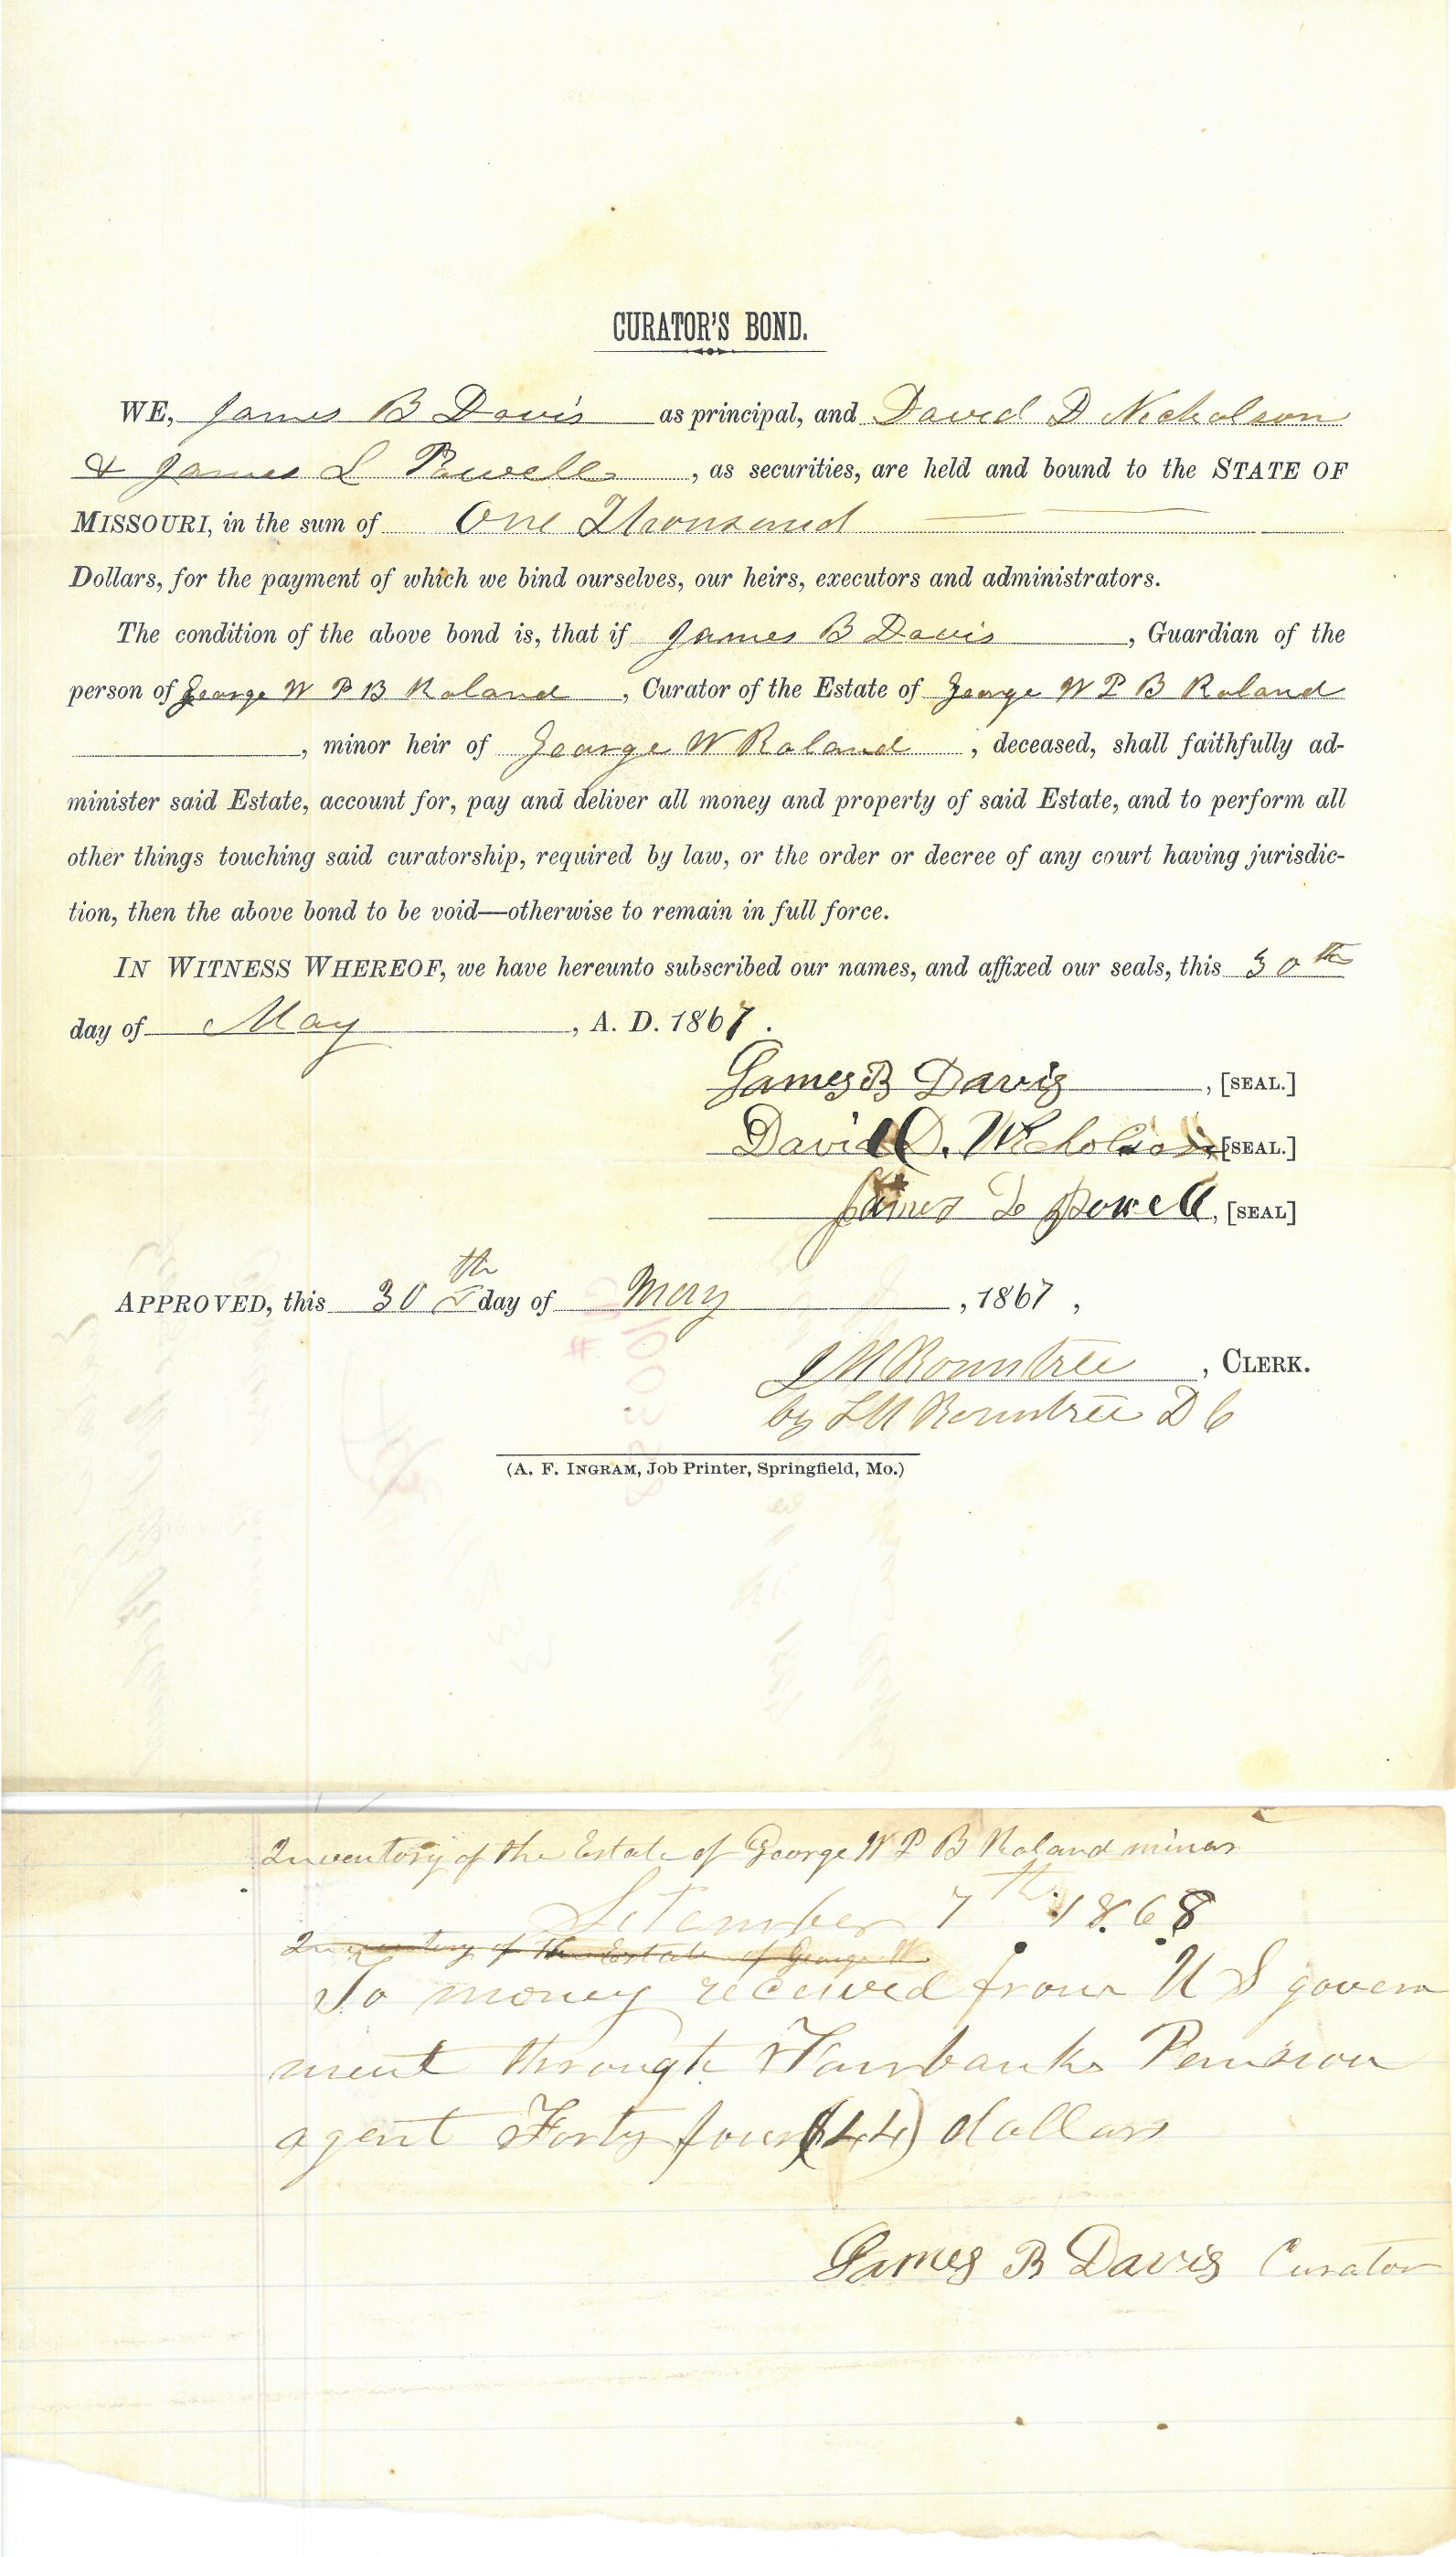 CURATOR'S BOND.
WE, James B Davis as principal, and David D Nicholson
& James L Powell, as securities, are held and bound to the STATE OF
MISSOURI, in the sum of One Thousand
Dollars, for the payment of which we bind ourselves, our heirs, executors and administrators.
The condition of the above bond is, that if James B Davis, Guardian of the
person of George W P B Roland, Curator of the Estate of George W P B Roland
, minor heir of George W Roland, deceased, shall faithfully ad-
minister said Estate, account for, pay and deliver all money and property of said Estate, and to perform all
other things touching said curatorship, required by law, or the order or decree of any court having jurisdic-
tion, then the above bond to be void—otherwise to remain in full force.
IN WITNESS WHEREOF, we have hereunto subscribed our names, and affixed our seals, this 30th
day of May, A. D. 1867.
James B Davis, [SEAL.]
David D. Nicholson, [SEAL.]
James L Powell, [SEAL]
APPROVED, this 30th day of May, 1867,
J M Rountree, CLERK.
by L M Rountree D C
(A. F. INGRAM, Job Printer, Springfield, Mo.)
Inventory of the Estate of George W P B Roland minor
Setember 7th 1868
Inventory of the Estate of George W
To money received from U S govern
ment through Fairbanks Pension
agent Forty four (44) dollars
James B Davis Curator